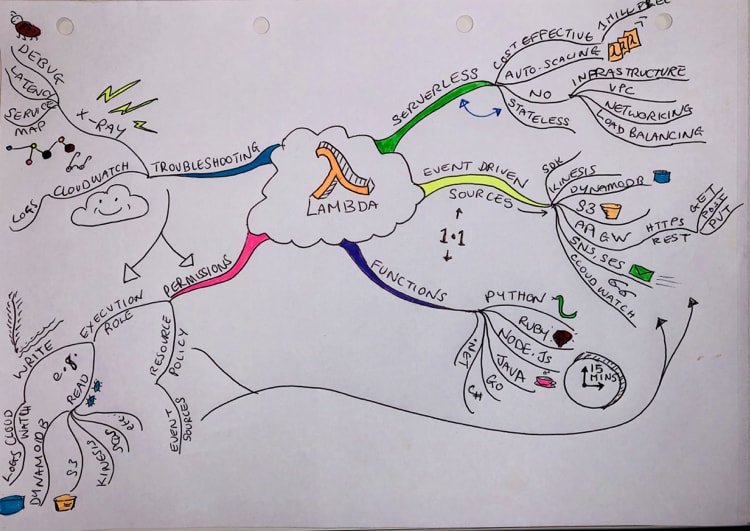 LAMBDA
SERVERLESS
COST EFFECTIVE
1 MILL FREE
AUTO-SCALING
λ λ λ
NO
INFRASTRUCTURE
VPC
NETWORKING
LOAD BALANCING
STATELESS
EVENT DRIVEN
SOURCES
SDK
KINESIS
DYNAMODB
S3
A A GW
HTTPS
REST
GET
POST
PUT
SNS, SES
CLOUDWATCH
1.1
FUNCTIONS
PYTHON
RUBY
NODE.JS
JAVA
GO
C#
.NET
15
MINS
PERMISSIONS
EXECUTION
ROLE
e.g.
WRITE
LOGS CLOUD
WATCH
READ
DYNAMODB
S3
KINESIS
SQS
etc.
RESOURCE
POLICY
EVENT
SOURCES
TROUBLESHOOTING
X-RAY
DEBUG
LATENCY
SERVICE
MAP
CLOUDWATCH
LOGS